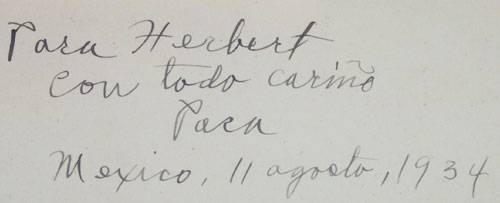 Para Herbert
con todo cariño
Paca
Mexico, 11 agosto, 1934